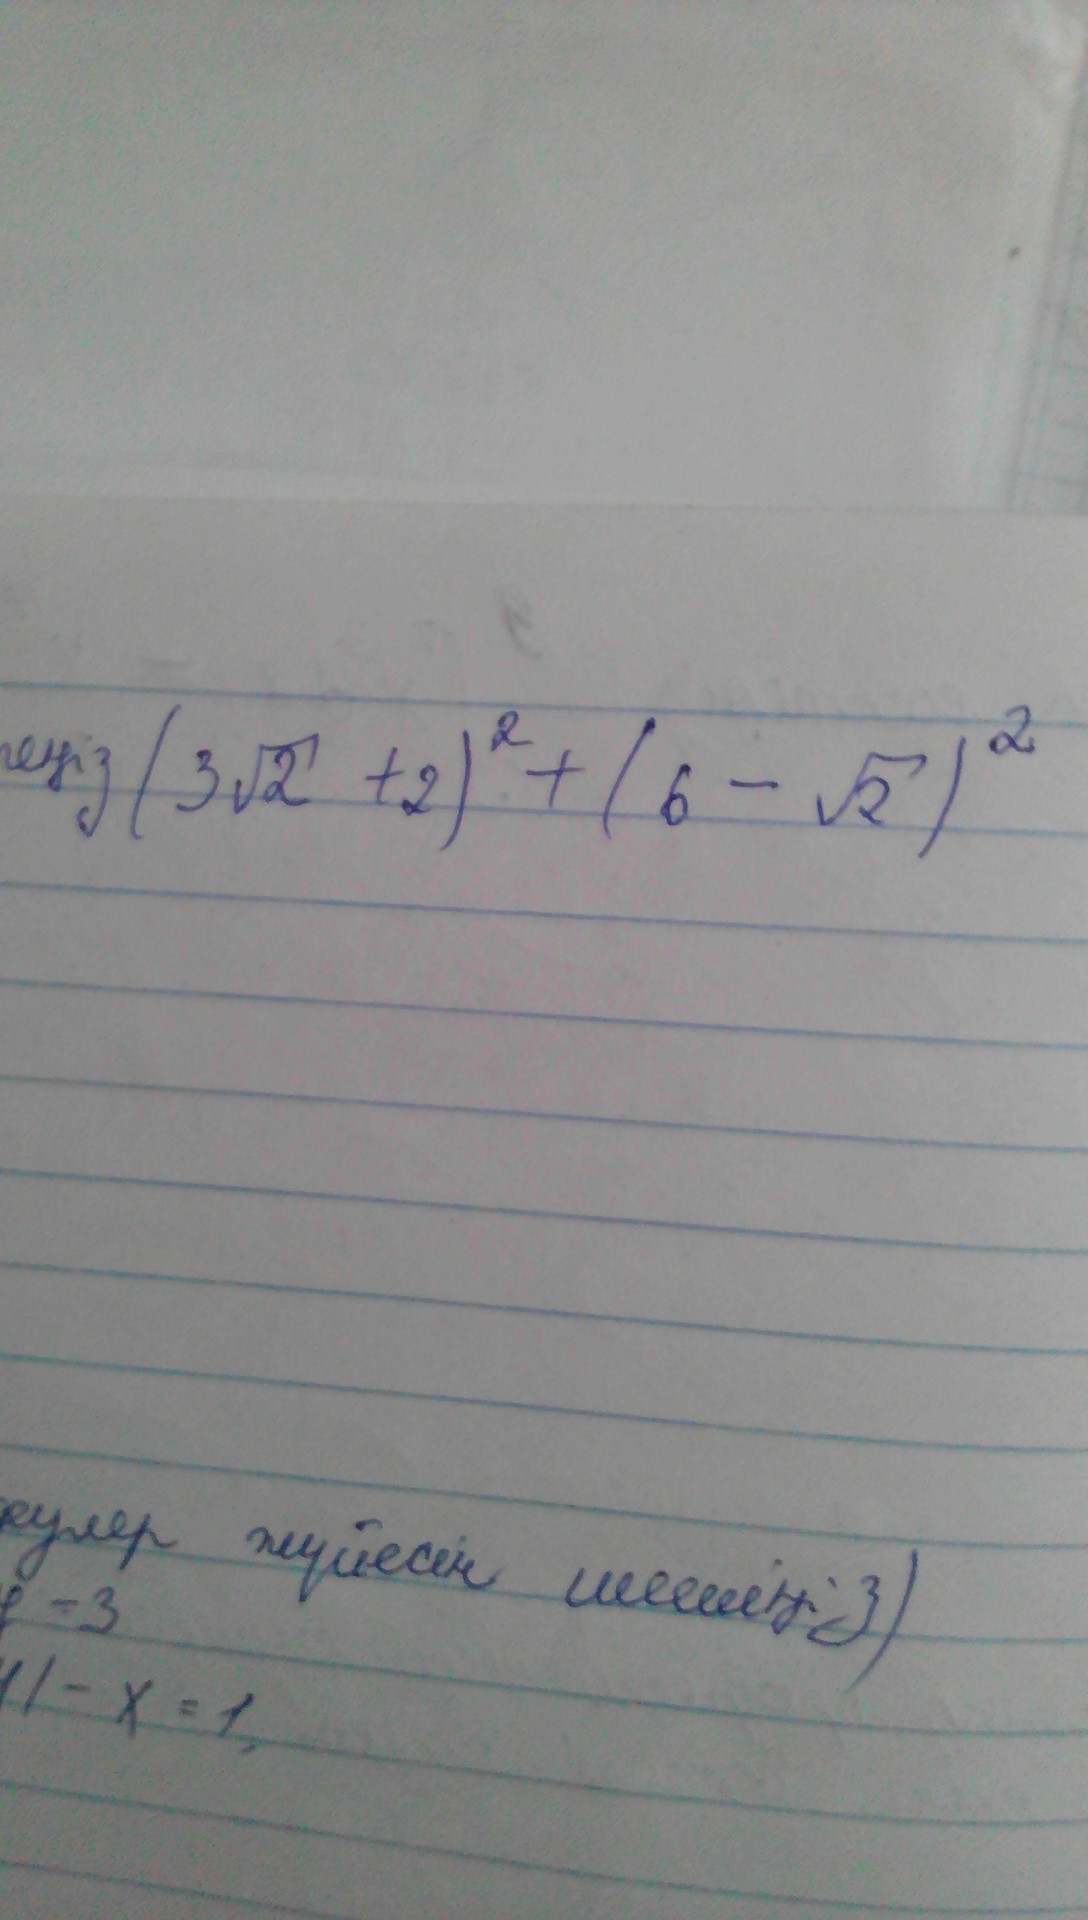 (3√2 + 2)² + (6 - √2)²
жүйесін шешіңіз)
- 3
| - x = 1,